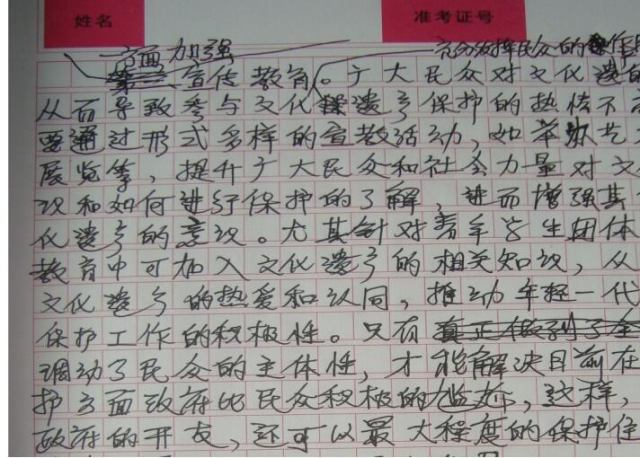 姓名 准考证号
一方面加强 充分发挥民众的作
宣传教育。广大民众对文化遗
从而导致参与文化遗产保护的热情不
要通过形式多样的宣教活动，如举
展览等，提升广大民众和社会力量对文
识和如何进行保护的了解，进而增强其
化遗产的意识。尤其针对青年学生团体
教育中可加入文化遗产的相关知识，从
文化遗产的热爱和认同，推动年轻一代
保护工作的积极性。只有真正做到了全
调动了民众的主体性，才能解决目前在
护方面政府比民众积极的尴尬，这样，
政府的开支，还可以最大程度的保护住